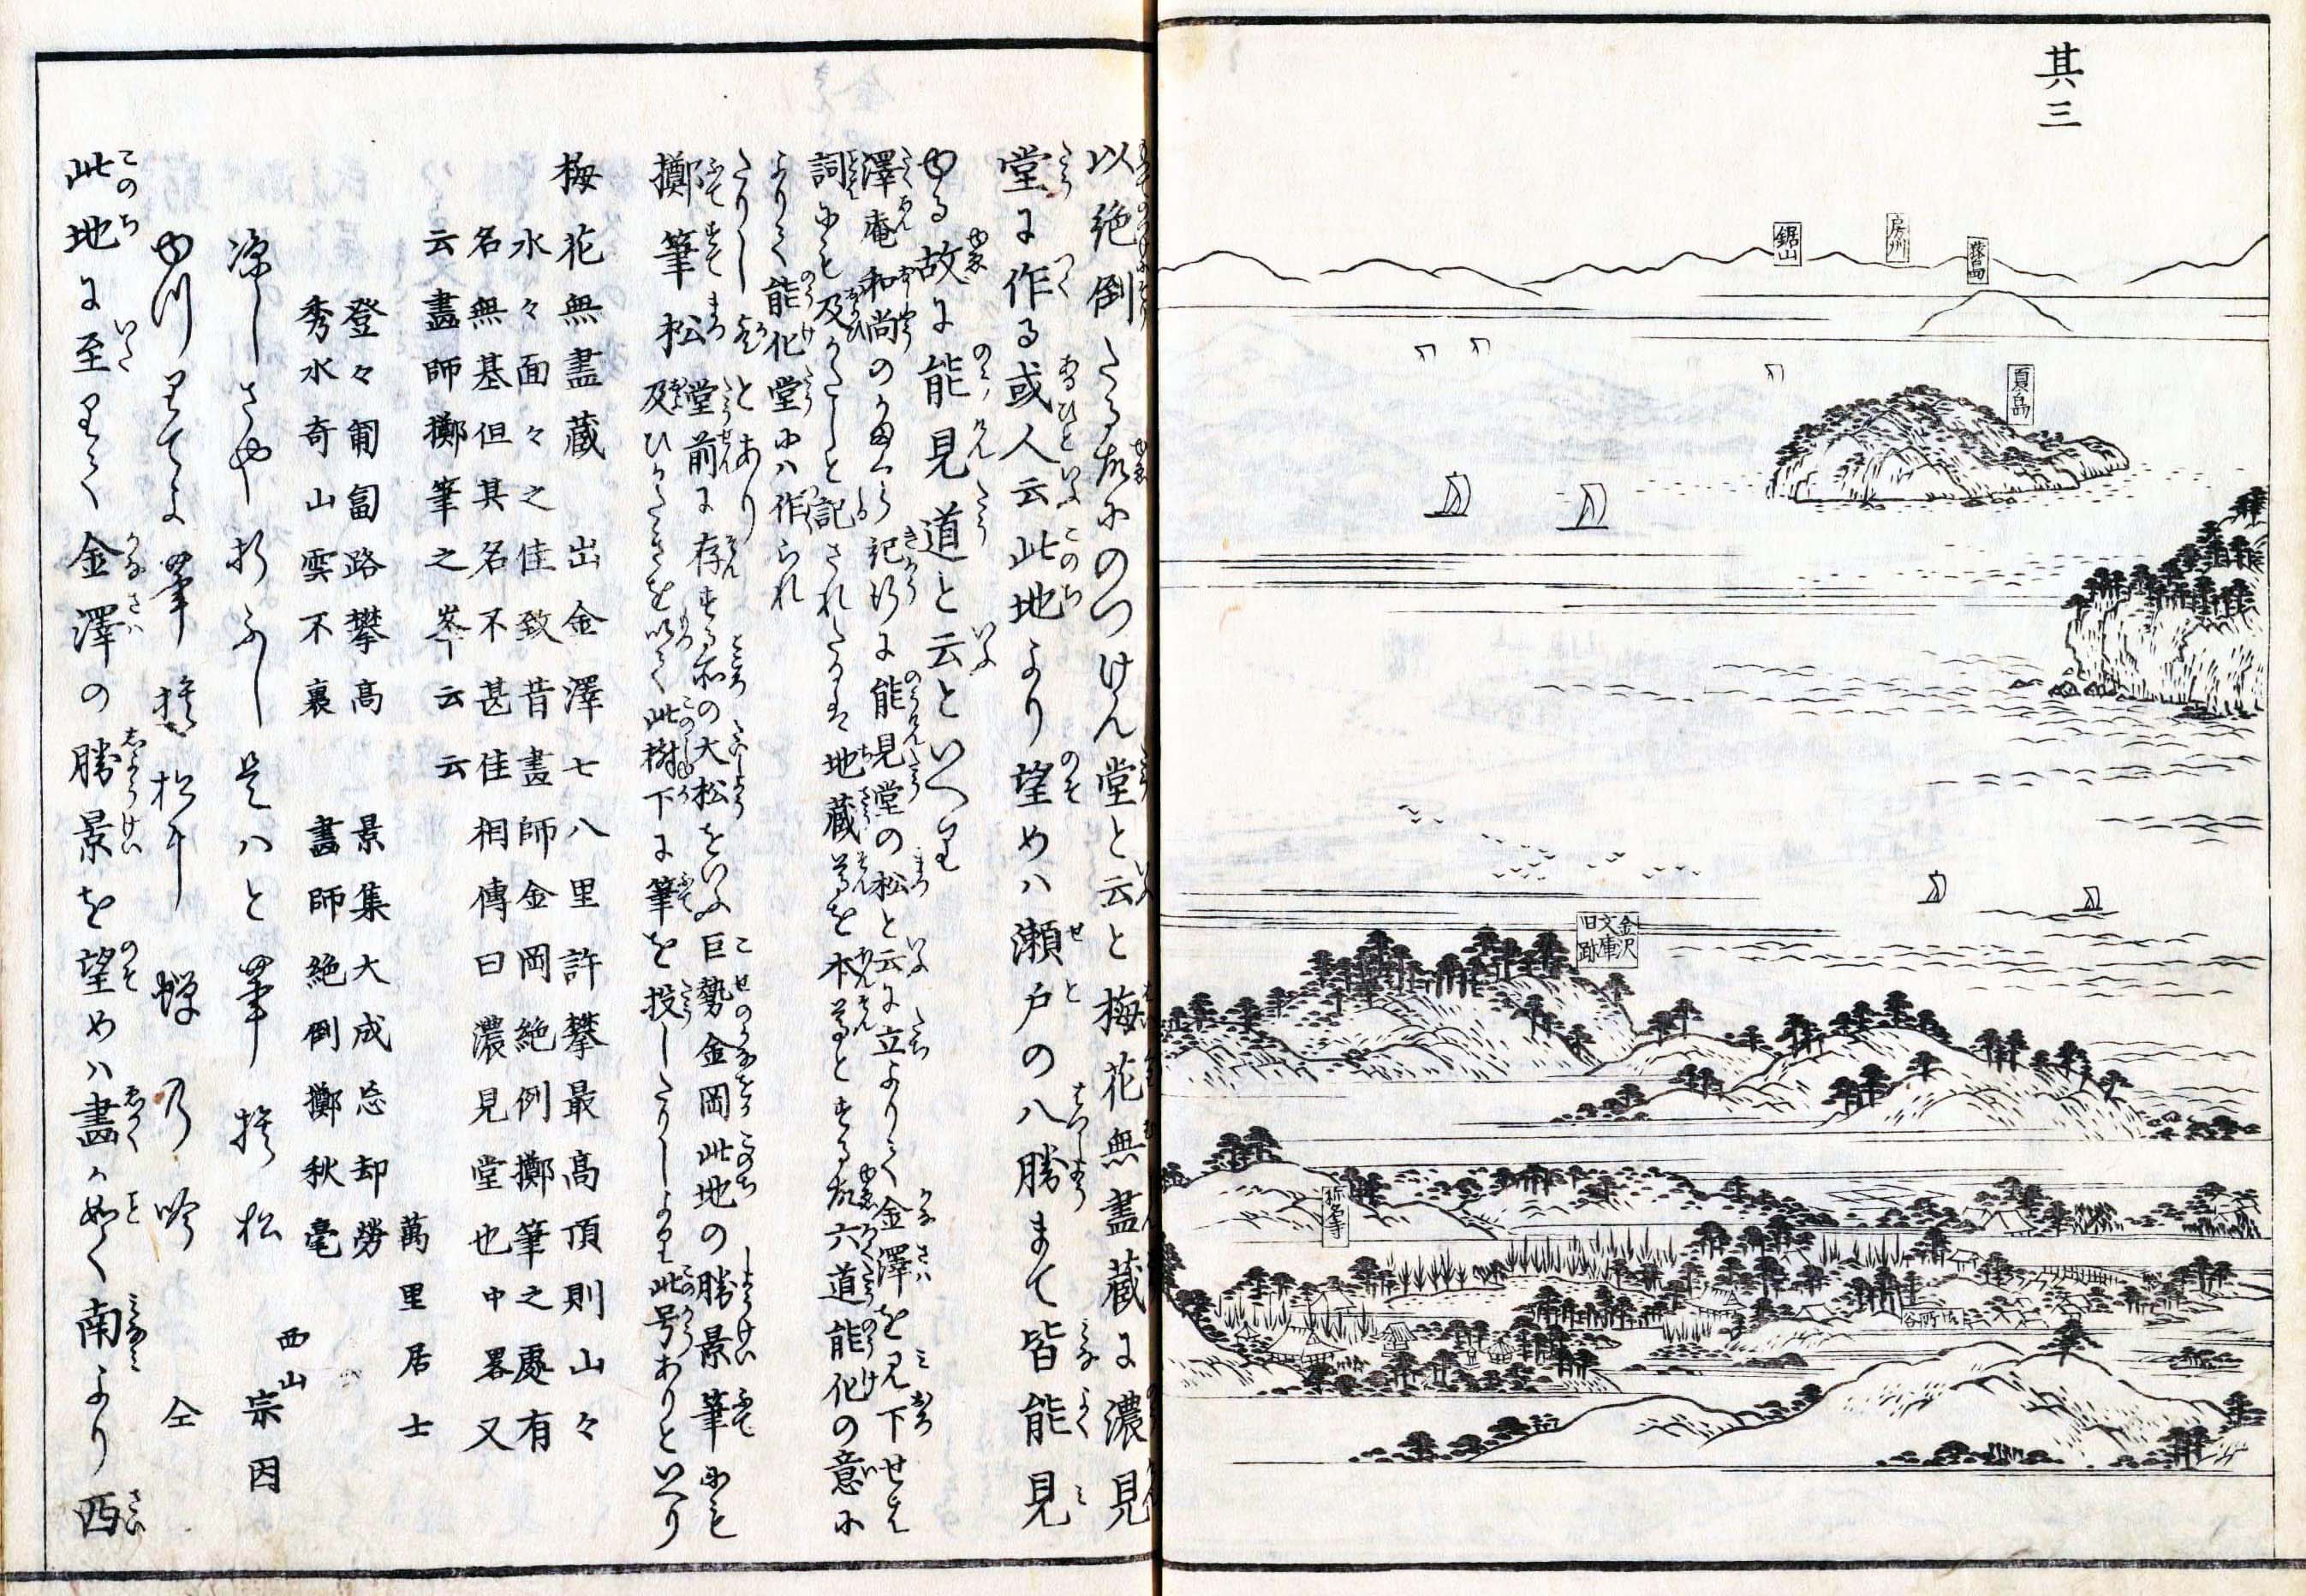 其三
鋸山
房州
猿島
夏島
金沢
文庫
旧跡
称名寺
以絶倒たる故にのつけん堂と云と梅花無盡蔵に濃見
堂に作る或人云此地より望めハ瀬戸の八勝まて皆能見
ゆる故に能見道と云といへり
澤庵和尚のかまくら記行に能見堂の松と云に立よりて金澤を見下せは
詞にも及かたしと記されたるは地蔵尊を本尊とする故六道能化の意に
よりて能化堂にハ作られ
たりし歟とあり
擲筆松 堂前に存する所の大松をいふ巨勢金岡此地の勝景筆にも
及ひかたきを以て此樹下に筆を投したりしより此号ありといへり
梅花無盡蔵 出金澤七八里許攀最高頂則山々
水々面々之佳致昔畫師金岡絶倒擲筆之處有
名無基但其名不甚佳相傳曰濃見堂也中畧又
云畫師擲筆之峯云云
登々匍匐路攀高 景集大成忘却勞
秀水奇山雲不裏 畫師絶倒擲秋毫
萬里居士
涼しさや折ふし是ハと筆捨松 西山宗因
ゆつりてよ筆捨松に蝉の吟 仝
此地に至りて金澤の勝景を望めハ畫か如く南より西